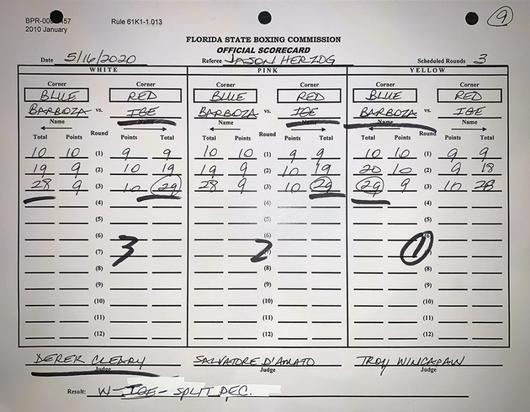 BPR-00 457 Rule 61K1-1.013 9
2010 January
FLORIDA STATE BOXING COMMISSION
OFFICIAL SCORECARD
Date 5/16/2020 Referee JASON HERZOG Scheduled Rounds 3
WHITE PINK YELLOW
Corner Corner Corner Corner Corner Corner
BLUE RED BLUE RED BLUE RED
BARBOZA vs. IGE BARBOZA vs. IGE BARBOZA vs. IGE
Name Name Name Name Name Name
Total Points Round Points Total Total Points Round Points Total Total Points Round Points Total
10 10 (1) 9 9 10 10 (1) 9 9 10 10 (1) 9 9
19 9 (2) 10 19 19 9 (2) 10 19 20 10 (2) 9 18
28 9 (3) 10 29 28 9 (3) 10 29 29 9 (3) 10 28
(4) (4) (4)
(5) (5) (5)
(6) (6) (6)
3 (7) 2 (7) 1 (7)
(8) (8) (8)
(9) (9) (9)
(10) (10) (10)
(11) (11) (11)
(12) (12) (12)
DEREK CLEARY SALVATORE D'AMATO TROY WINCAPAW
Judge Judge Judge
Result: W-IGE-SPLIT DEC.